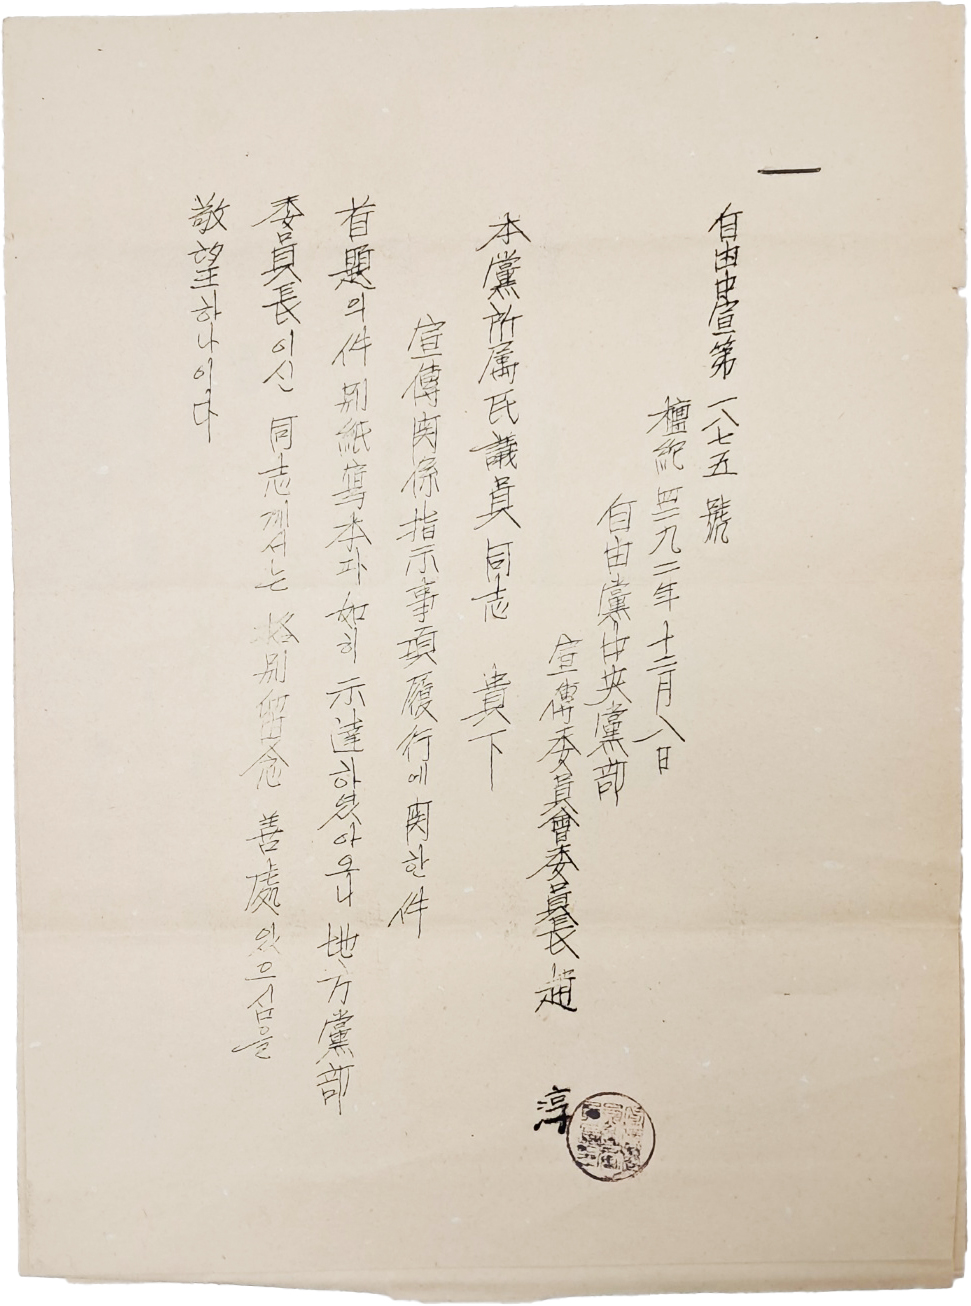 自由中宣第一八七五號
檀紀四二九二年十二月八日
自由黨中央黨部
宣傳委員會委員長 趙 淳
本黨所属民議員同志 貴下
宣傳関係指示事項履行에関한件
首題의件 別紙寫本과如히 示達하였아오니 地方黨部
委員長이신 同志께서는 格別留念 善處있으심을
敬望하나이다